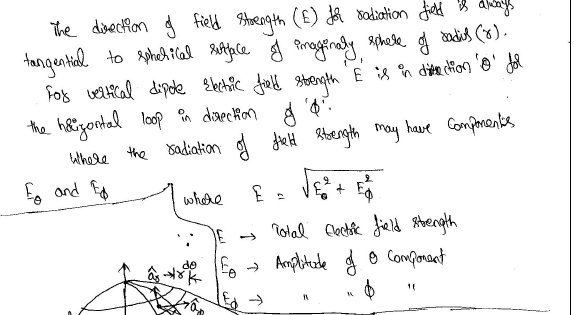 The direction of field strength (E) for radiation field is always
tangential to spherical surface of imaginary sphere of radius (r).
For vertical dipole electric field strength 'E' is in direction 'θ' for
the horizontal loop in direction of 'ϕ'.
Where the radiation of field strength may have components
E_θ and E_ϕ where E = √(E_θ² + E_ϕ²)
∵ E → Total Electric field strength
E_θ → Amplitude of θ Component
E_ϕ → " " ϕ "
dθ
â_r r